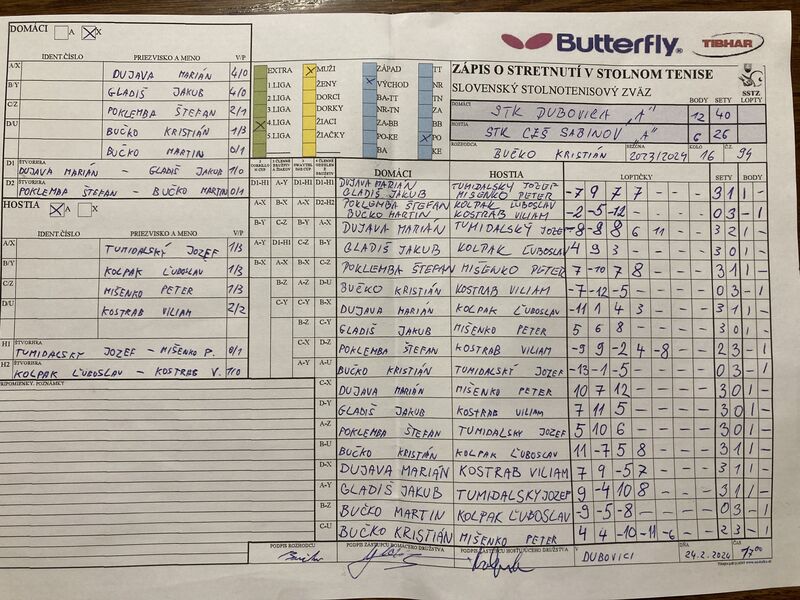 DOMÁCI A X
IDENT.ČÍSLO PRIEZVISKO A MENO V/P
A/X DUJAVA MARIÁN 4/0
B/Y GLADIŠ JAKUB 4/0
C/Z POKLEMBA ŠTEFAN 2/1
D/U BUČKO KRISTIÁN 1/3
BUČKO MARTIN 0/1
D1 ŠTVORHRA DUJAVA MARIÁN - GLADIŠ JAKUB 1/0
D2 ŠTVORHRA POKLEMBA ŠTEFAN - BUČKO MARTIN 0/1
HOSTIA A X
IDENT.ČÍSLO PRIEZVISKO A MENO V/P
A/X TUMIDALSKÝ JOZEF 1/3
B/Y KOLPAK ĽUBOSLAV 1/3
C/Z MIŠENKO PETER 1/3
D/U KOSTRAB VILIAM 2/2
H1 ŠTVORHRA TUMIDALSKÝ JOZEF - MIŠENKO P. 0/1
H2 ŠTVORHRA KOLPAK ĽUBOSLAV - KOSTRAB V. 1/0
PRIPOMIENKY, POZNÁMKY
EXTRA MUŽI ZÁPAD TT
1 LIGA ŽENY VÝCHOD NR
2 LIGA DORCI BA-TT TN
3 LIGA DORKY NR-TN ZA
4 LIGA ŽIACI ZA-BB BB
5 LIGA ŽIAČKY PO-KE PO
BA KE
Butterfly TIBHAR
ZÁPIS O STRETNUTÍ V STOLNOM TENISE
SLOVENSKÝ STOLNOTENISOVÝ ZVÄZ SSTZ
DOMÁCI STK DUBOVICA "A" BODY 12 SETY 40 LOPTY
HOSTIA STK CZŠ SABINOV "A" 6 26
ROZHODCA BUČKO KRISTIÁN SEZÓNA 2023/2024 KOLO 16 Č.
DOMÁCI HOSTIA LOPTIČKY SETY BODY
D1-H1 A-Y D1-H1 D1-H1 DUJAVA MARIÁN GLADIŠ JAKUB TUMIDALSKÝ JOZEF MIŠENKO PETER -7 9 7 7 - - - 3 1 1 -
A-X B-X A-X D2-H2 POKLEMBA ŠTEFAN BUČKO MARTIN KOLPAK ĽUBOSLAV KOSTRAB VILIAM -2 -5 -12 - - - - 0 3 - 1
B-Y C-Z B-Y A-X DUJAVA MARIÁN TUMIDALSKÝ JOZEF -8 -8 8 6 11 - - 3 2 1 -
A-Y D1-H1 C-Z B-Y GLADIŠ JAKUB KOLPAK ĽUBOSLAV 4 9 3 - - - - 3 0 1 -
B-X A-X B-X C-Z POKLEMBA ŠTEFAN MIŠENKO PETER 7 -10 7 8 - - - 3 1 1 -
B-Z A-Z D-U BUČKO KRISTIÁN KOSTRAB VILIAM -7 -12 -5 - - - - 0 3 - 1
C-Y C-Y B-X DUJAVA MARIÁN KOLPAK ĽUBOSLAV -11 1 4 3 - - - 3 1 1 -
B-Z C-Y GLADIŠ JAKUB MIŠENKO PETER 5 6 8 - - - - 3 0 1 -
C-X D-Z POKLEMBA ŠTEFAN KOSTRAB VILIAM -9 9 -2 4 -8 - - 2 3 - 1
A-Y A-U BUČKO KRISTIÁN TUMIDALSKÝ JOZEF -13 -1 -5 - - - - 0 3 - 1
C-X DUJAVA MARIÁN MIŠENKO PETER 10 7 12 - - - - 3 0 1 -
D-Y GLADIŠ JAKUB KOSTRAB VILIAM 7 11 5 - - - - 3 0 1 -
A-Z POKLEMBA ŠTEFAN TUMIDALSKY JOZEF 5 10 6 - - - - 3 0 1 -
B-U BUČKO KRISTIÁN KOLPAK ĽUBOSLAV 11 -7 5 8 - - - 3 1 1 -
D-X DUJAVA MARIÁN KOSTRAB VILIAM 7 9 -5 7 - - - 3 1 1 -
A-Y GLADIŠ JAKUB TUMIDALSKÝ JOZEF 9 -4 10 8 - - - 3 1 1 -
B-Z BUČKO MARTIN KOLPAK ĽUBOSLAV -9 -5 -8 - - - - 0 3 - 1
C-U BUČKO KRISTIÁN MIŠENKO PETER 4 4 -10 -11 -6 - - 2 3 - 1
PODPIS ROZHODCU PODPIS ZÁSTUPCU DOMÁCEHO DRUŽSTVA PODPIS ZÁSTUPCU HOSŤUJÚCEHO DRUŽSTVA V DUBOVICI DŇA 24.2.2024 ČAS 17:00